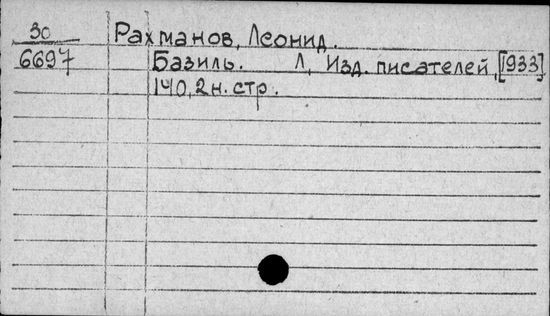 30 Рахманов, Леонид.
6697 Базиль. Л, Изд. писателей, [1933]
140, 2 н. стр.